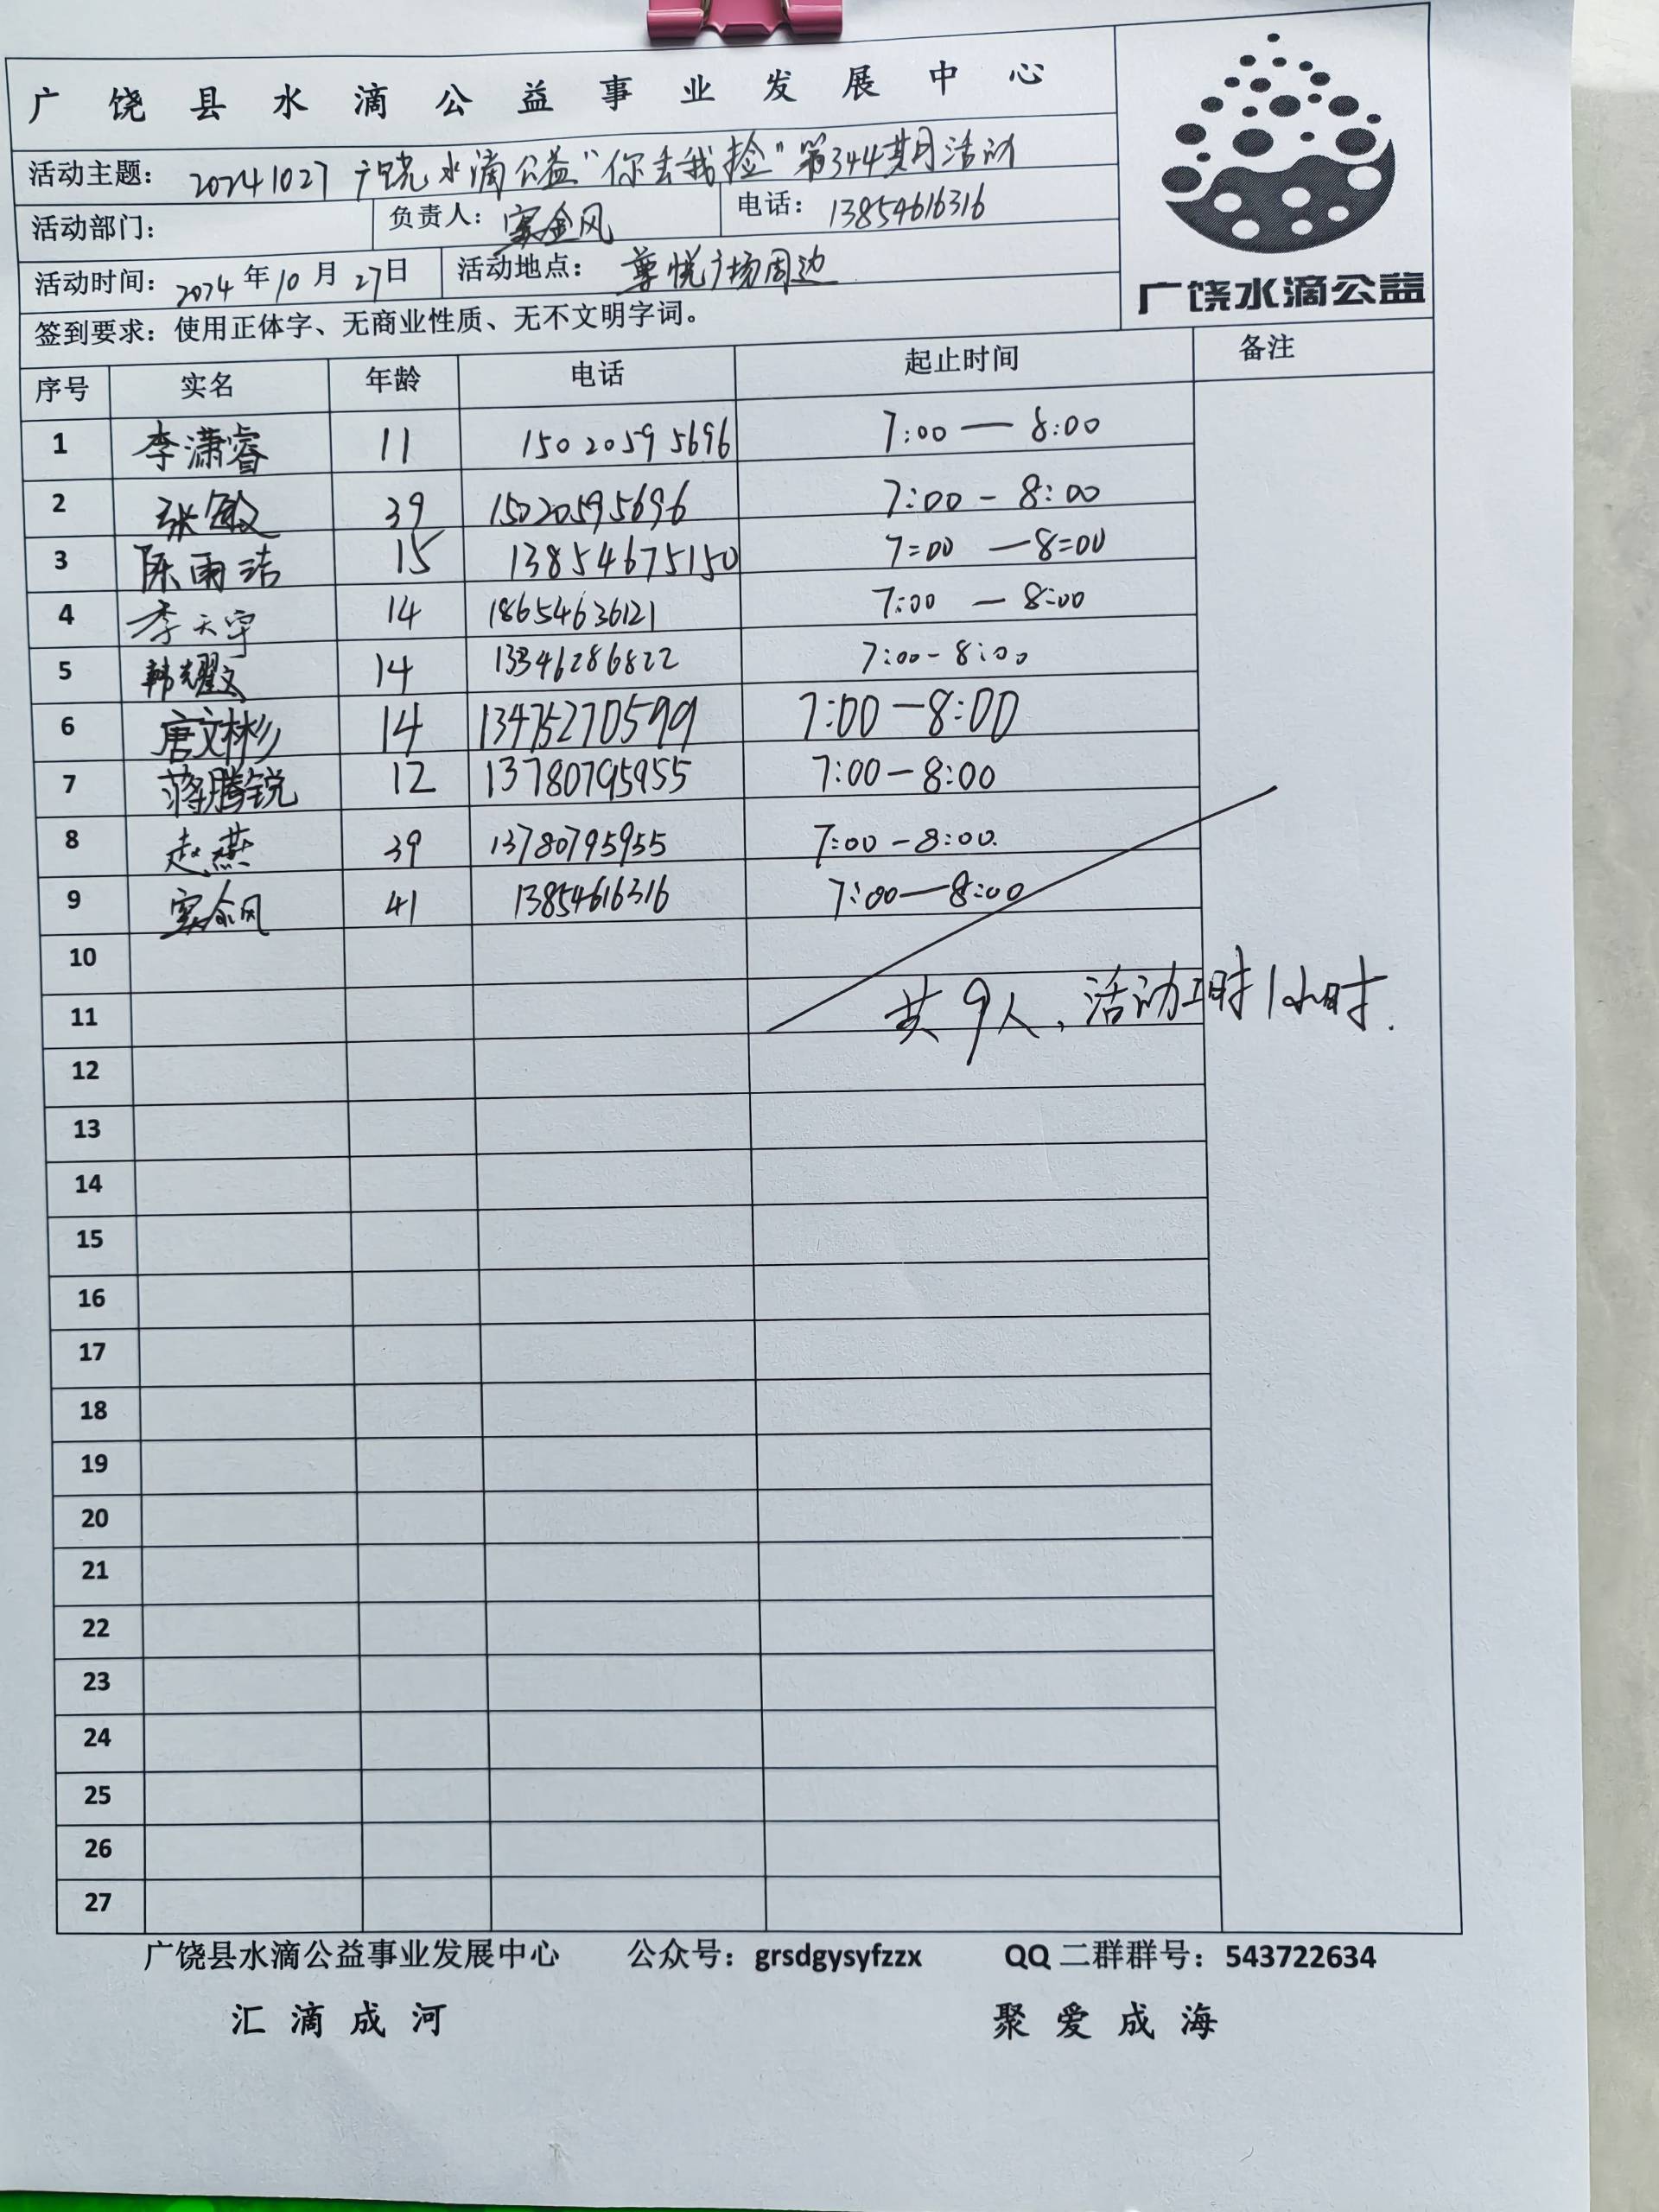 广饶县水滴公益事业发展中心
活动主题：20241027 广饶水滴公益“你丢我捡”第344期活动
活动部门： 负责人：窦金风 电话：13854616316
活动时间：2024年10月27日 活动地点：尊悦广场周边
广饶水滴公益
签到要求：使用正体字、无商业性质、无不文明字词。
序号 实名 年龄 电话 起止时间 备注
1 李潇睿 11 15020595696 7:00—8:00
2 张敏 39 15020595696 7:00-8:00
3 陈雨洁 15 13854675150 7:00—8:00
4 李天宇 14 18654636121 7:00—8:00
5 韩耀文 14 13346286822 7:00-8:00
6 唐文彬 14 13475270599 7:00—8:00
7 蒋腾锐 12 13780795955 7:00—8:00
8 赵燕 39 13780795955 7:00-8:00.
9 窦金风 41 13854616316 7:00—8:00
10
11 共9人，活动工时1小时.
12
13
14
15
16
17
18
19
20
21
22
23
24
25
26
27
广饶县水滴公益事业发展中心 公众号：grsdgysyfzzx QQ二群群号：543722634
汇滴成河 聚爱成海